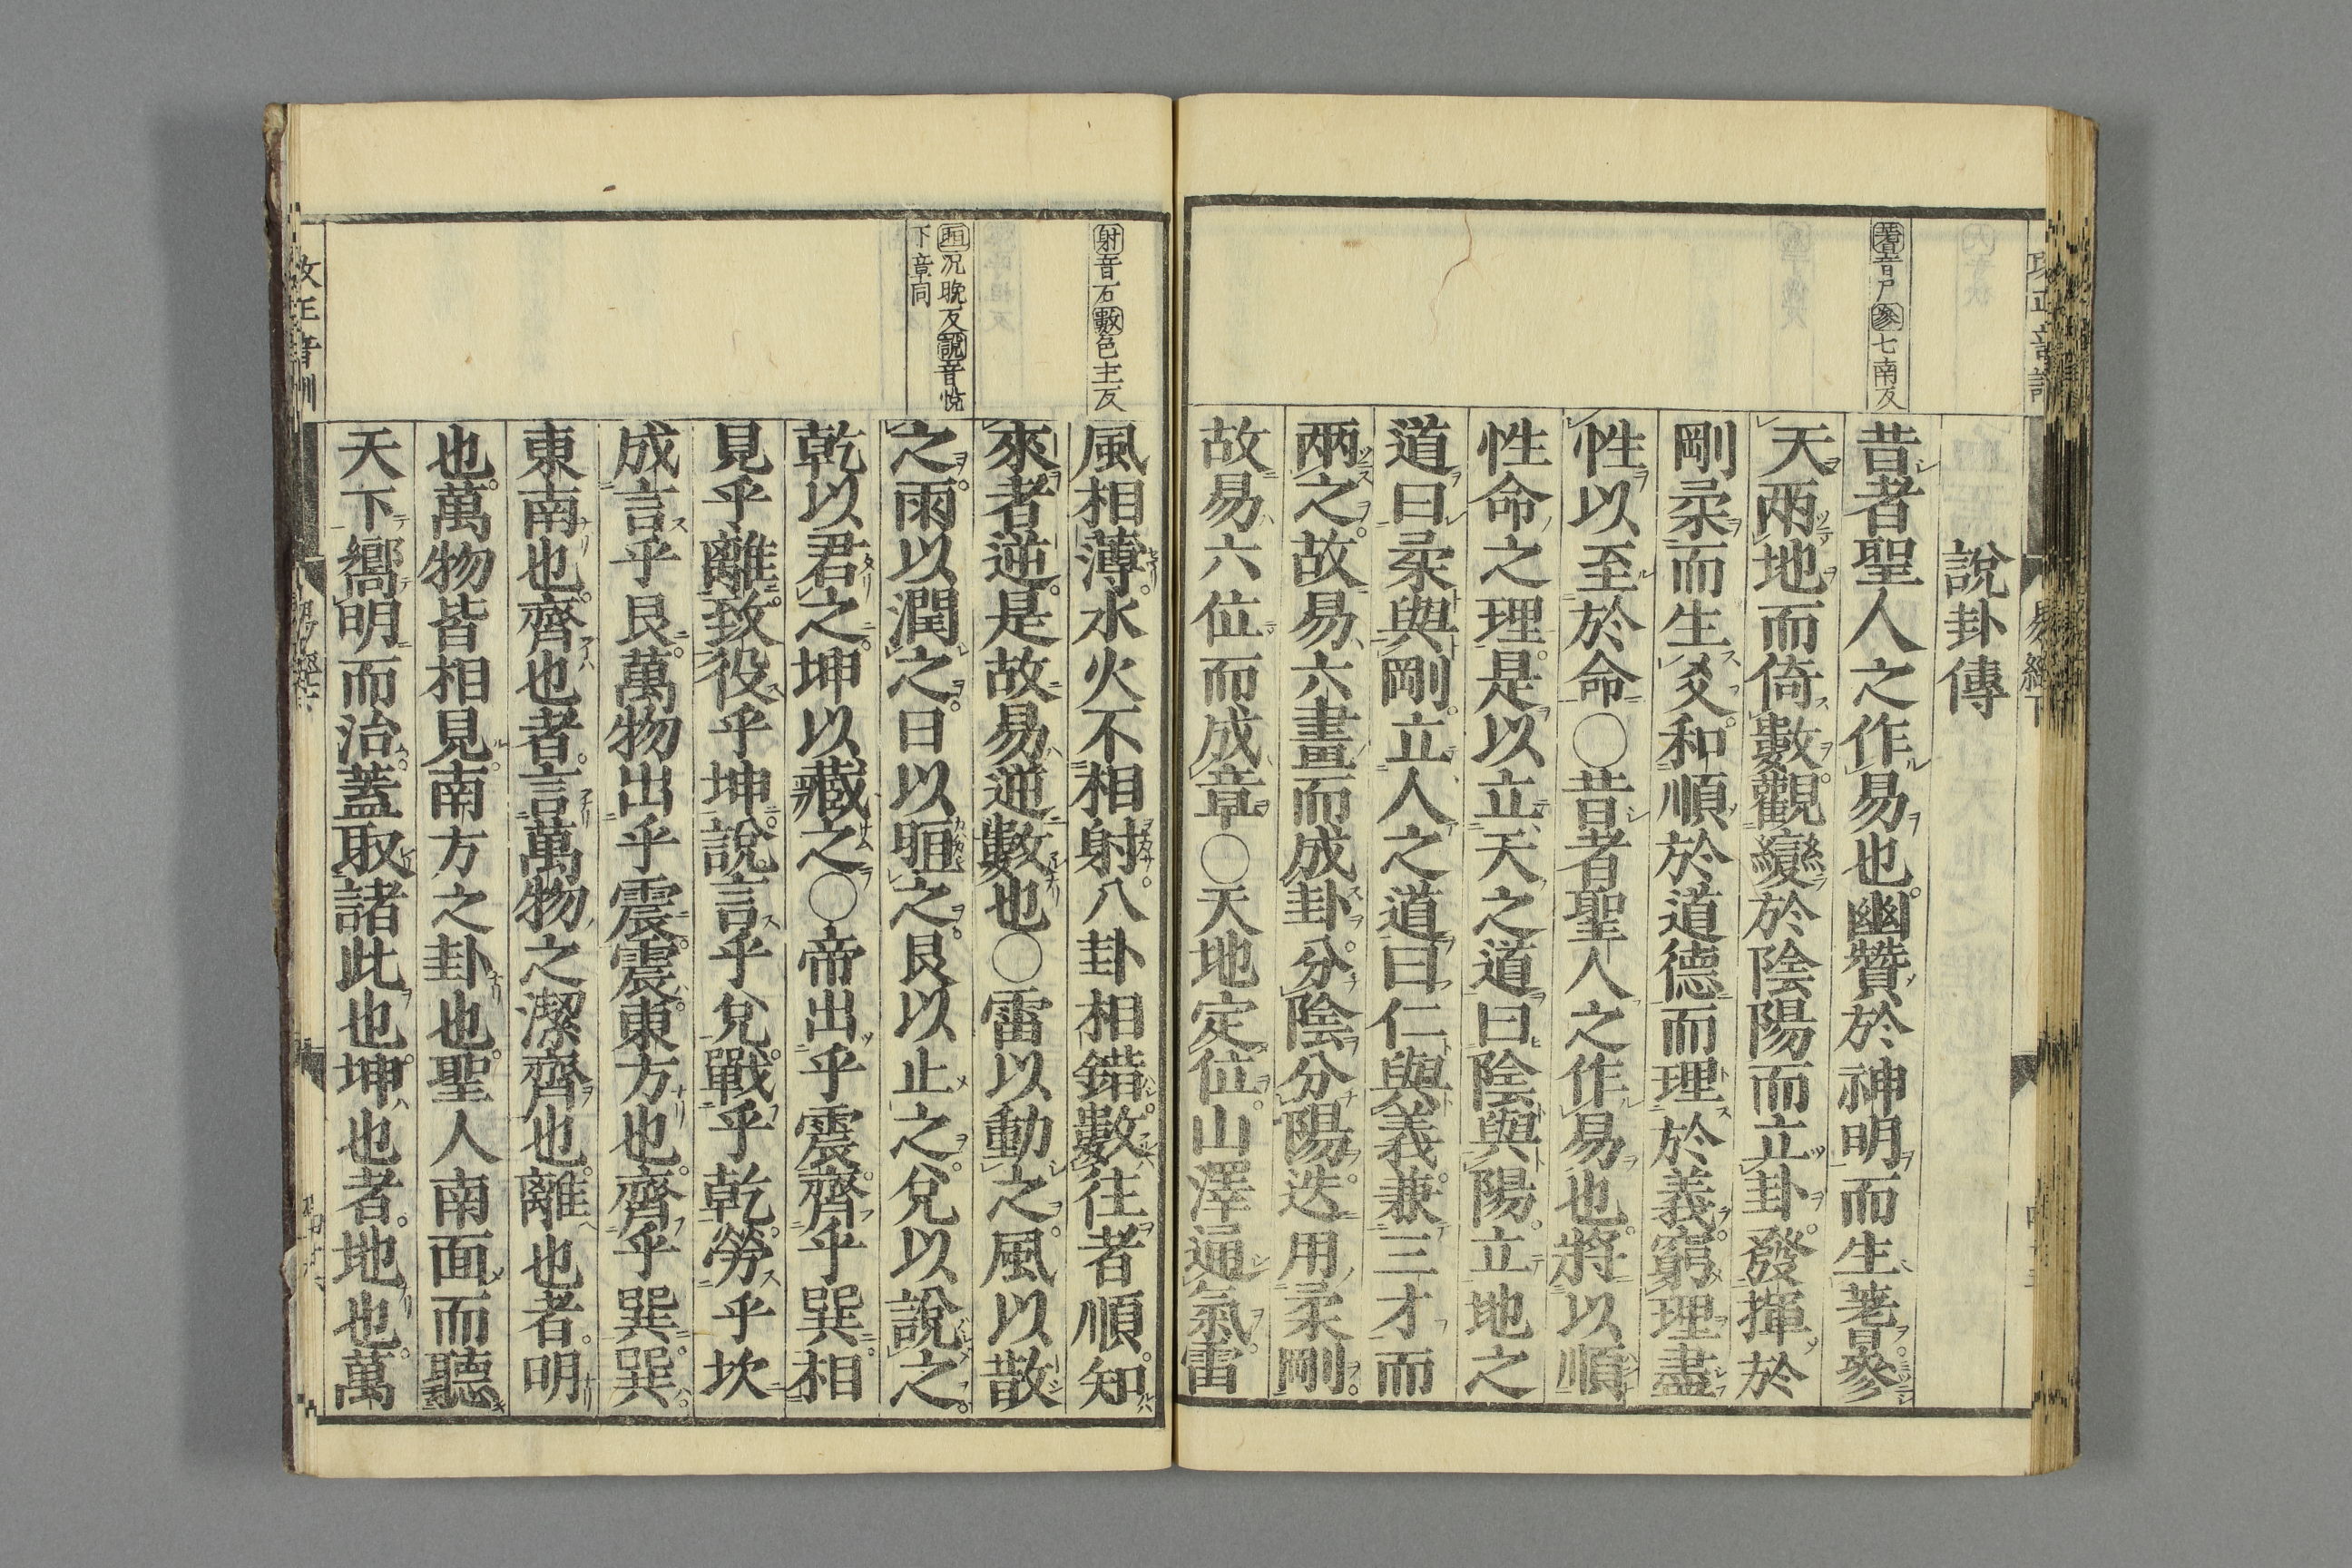 說卦傳
昔者聖人之作易也幽贊於神明而生蓍參
天兩地而倚數觀變於陰陽而立卦發揮於
剛柔而生爻和順於道德而理於義窮理盡
性以至於命○昔者聖人之作易也將以順
性命之理是以立天之道曰陰與陽立地之
道曰柔與剛立人之道曰仁與義兼三才而
兩之故易六畫而成卦分陰分陽迭用柔剛
故易六位而成章○天地定位山澤通氣雷
蓍音尸參七南反
風相薄水火不相射八卦相錯數往者順知
來者逆是故易逆數也○雷以動之風以散
之雨以潤之日以晅之艮以止之兌以說之
乾以君之坤以藏之○帝出乎震齊乎巽相
見乎離致役乎坤說言乎兌戰乎乾勞乎坎
成言乎艮萬物出乎震震東方也齊乎巽巽
東南也齊也者言萬物之潔齊也離也者明
也萬物皆相見南方之卦也聖人南面而聽
天下嚮明而治蓋取諸此也坤也者地也萬
射音石數色主反
晅况晚反說音悅
下章同
改正音訓
易經下